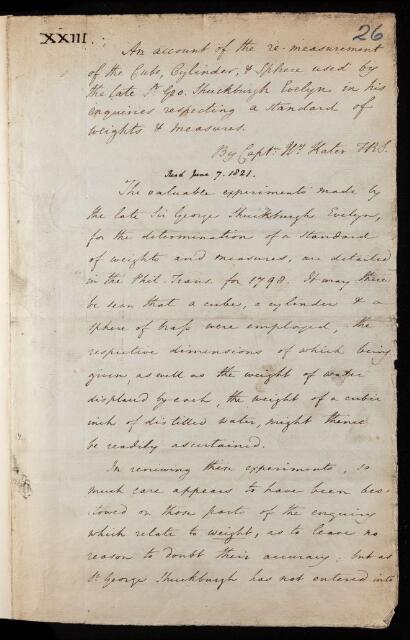 XXIII.
26
An account of the re-measurement
of the Cube, Cylinder, & Sphere used by
the late Sr. Geo. Shuckburgh Evelyn in his
enquiries respecting a standard of
weights & measures.
By Captn. Hy. Kater FRS.
Read June 7. 1821.
The valuable experiments made by
the late Sir George Shuckburgh Evelyn,
for the determination of a standard
of weights and measures, are detailed
in the Phil. Trans. for 1798. It may there
be seen that a cube, a cylinder & a
sphere of brass were employed, the
respective dimensions of which being
given, as well as the weight of water
displaced by each, the weight of a cubic
inch of distilled water, might thence
be readily ascertained.
In reviewing these experiments, so
much care appears to have been bes-
towed on those parts of the enquiry
which relate to weight, as to leave no
reason to doubt their accuracy; but as
Sr. George Shuckburgh has not entered into